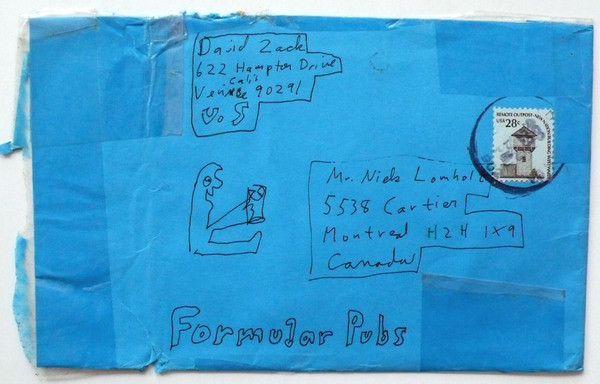 David Zack
622 Hampton Drive
Cali
Venice 90291
U.S
REMOTE OUTPOST
USA 28c
Mr. Nick Lomholt
5538 Cartier
Montreal H2H 1X9
Canada
Formular Pubs